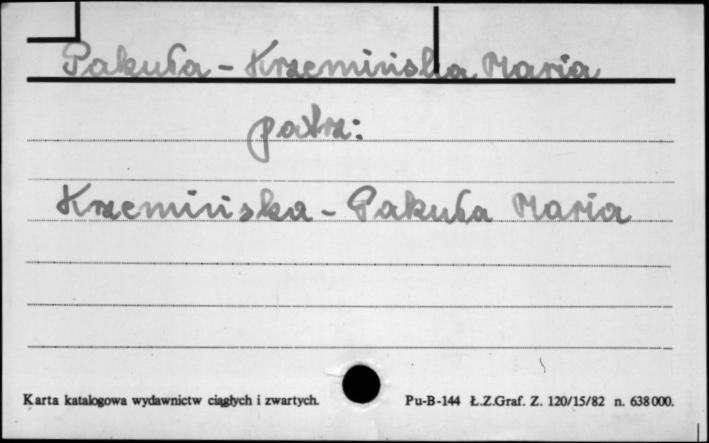 Pakuła - Krzemińska Maria
patrz:
Krzemińska - Pakuła Maria
Karta katalogowa wydawnictw ciągłych i zwartych. Pu-B-144 Ł.Z.Graf. Z. 120/15/82 n. 638000.